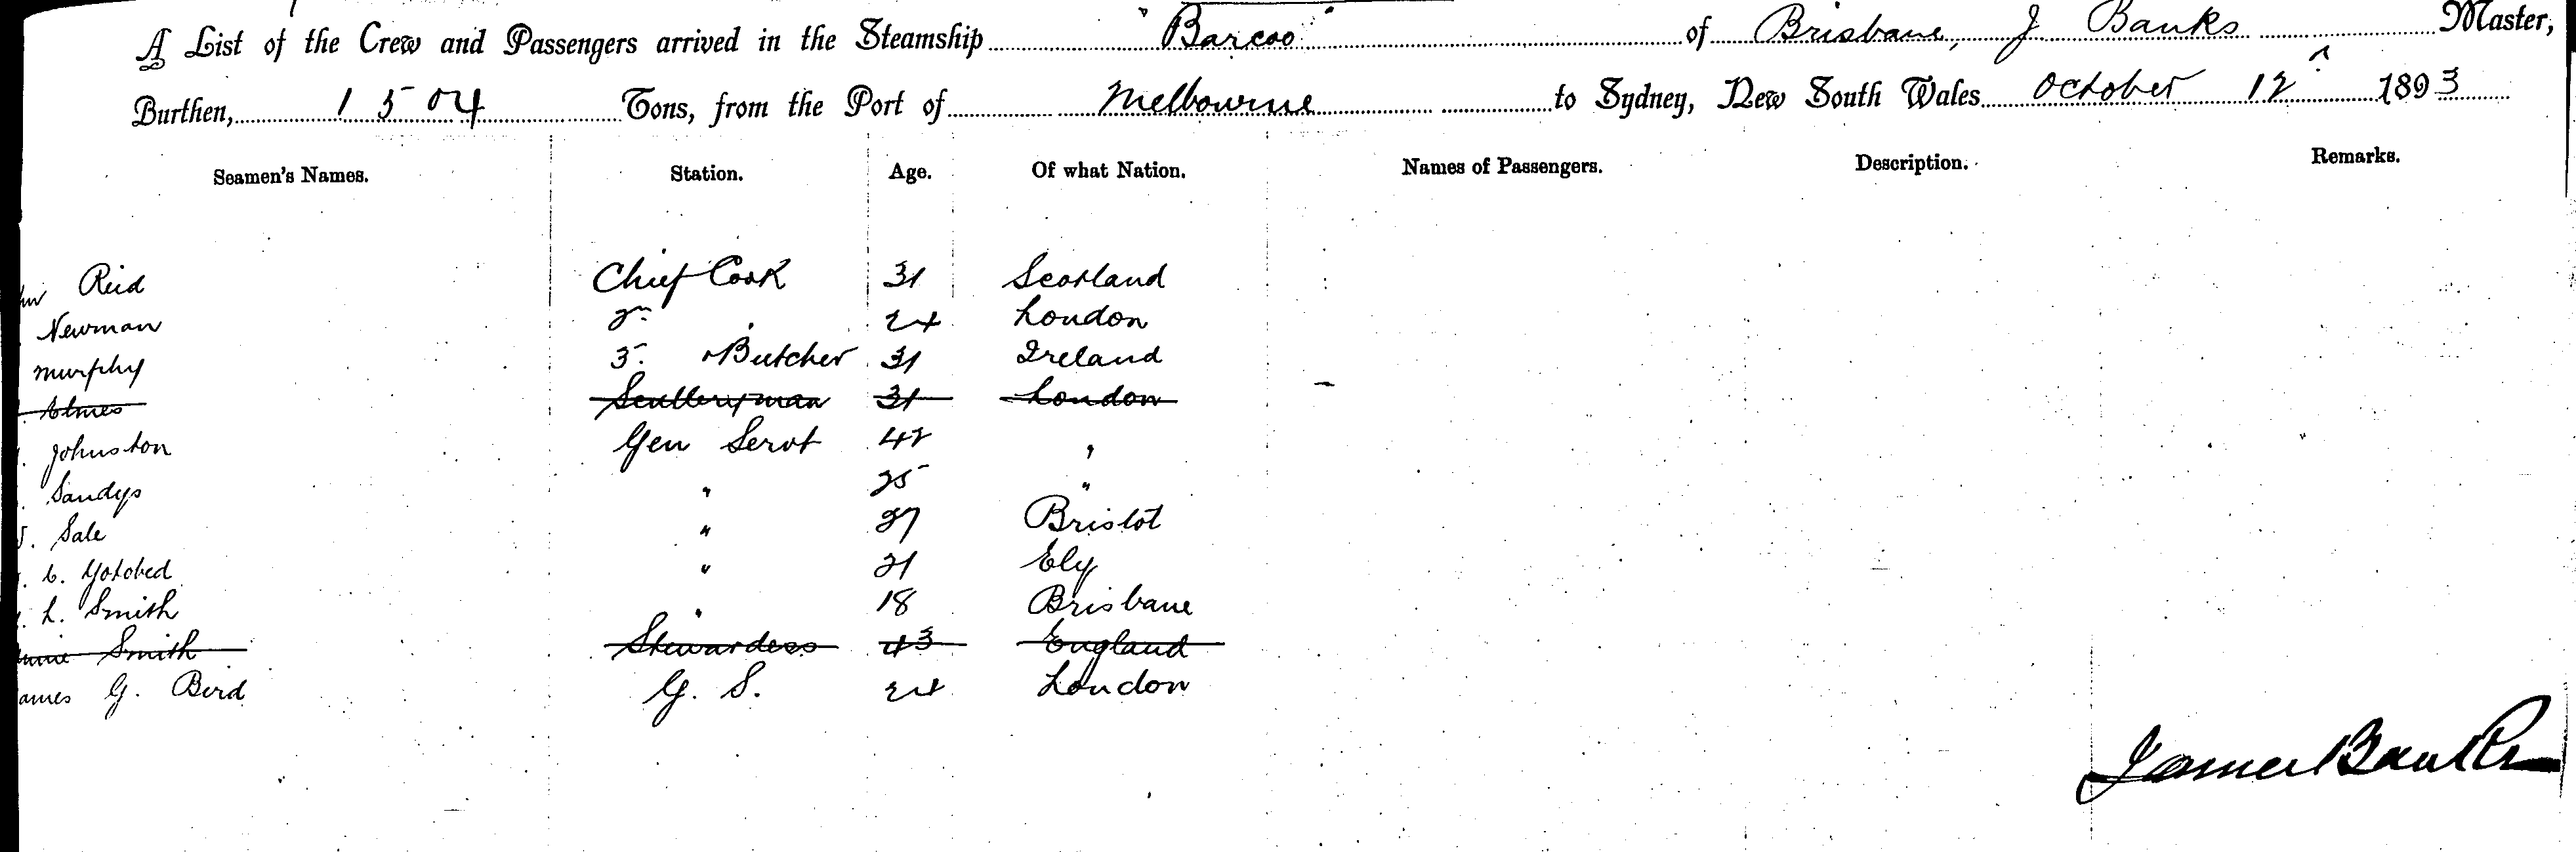 A List of the Crew and Passengers arrived in the Steamship "Barcoo" of Brisbane, J Banks Master,
Burthen, 1504 Tons, from the Port of Melbourne to Sydney, New South Wales October 12 1893
Seamen's Names. Station. Age. Of what Nation. Names of Passengers. Description. Remarks.
Reid Chief Cook 31 Scotland
Newman 2nd " 24 London
Murphy 3. + Butcher 31 Ireland
Scullery man 31 London
Johnston Gen Servt 42 "
Sandys " 25 "
Sale " 27 Bristol
. C. Gotobed " 21 Ely
. L. Smith " 18 Brisbane
Smith Stewardess 43 England
ames G. Bird G. S. 24 London
James Banks